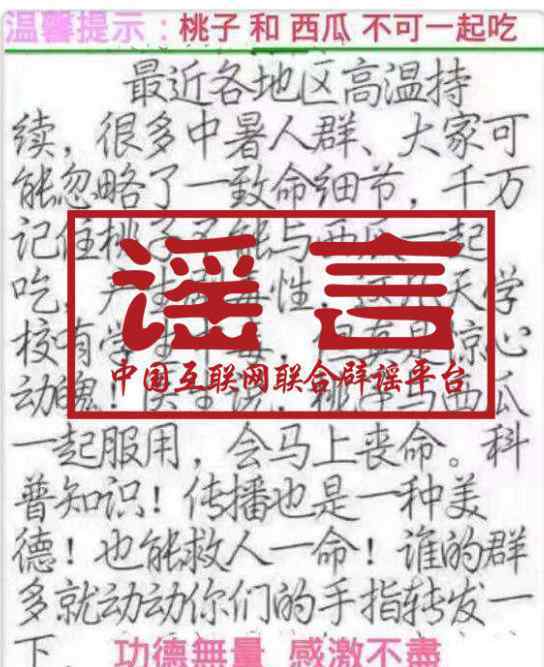 温馨提示：桃子 和 西瓜 不可一起吃
最近各地区高温持
续，很多中暑人群、大家可
能忽略了一致命细节，千万
记住桃子不能与西瓜一起
吃，产生剧毒性，这几天学
校有学生中毒，但真是惊心
动魄！医生说，桃子与西瓜
一起服用，会马上丧命。科
普知识！传播也是一种美
德！也能救人一命！谁的群
多就动动你们的手指转发一
下
功德無量 感激不盡
谣言
中国互联网联合辟谣平台